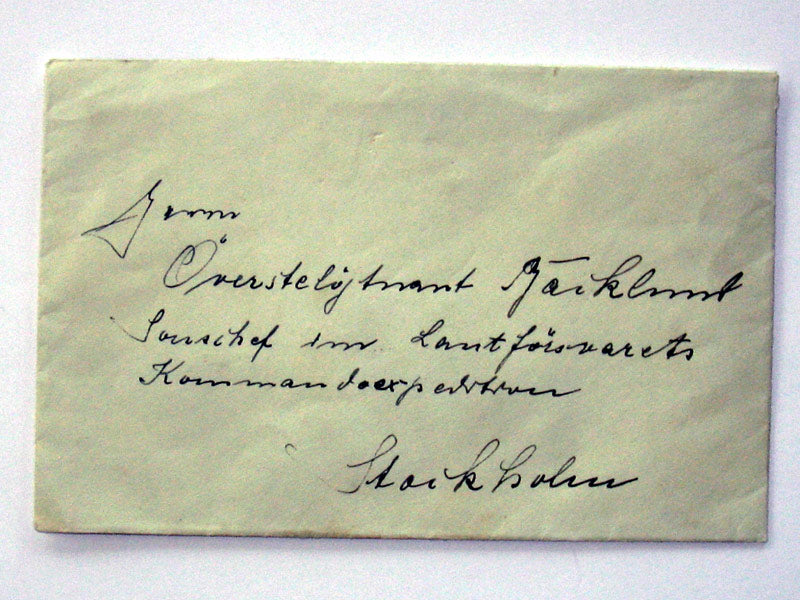 Herrn
Överstelöjtnant Bäcklund
Souschef im Lantförsvarets
Kommandoexpedition
Stockholm